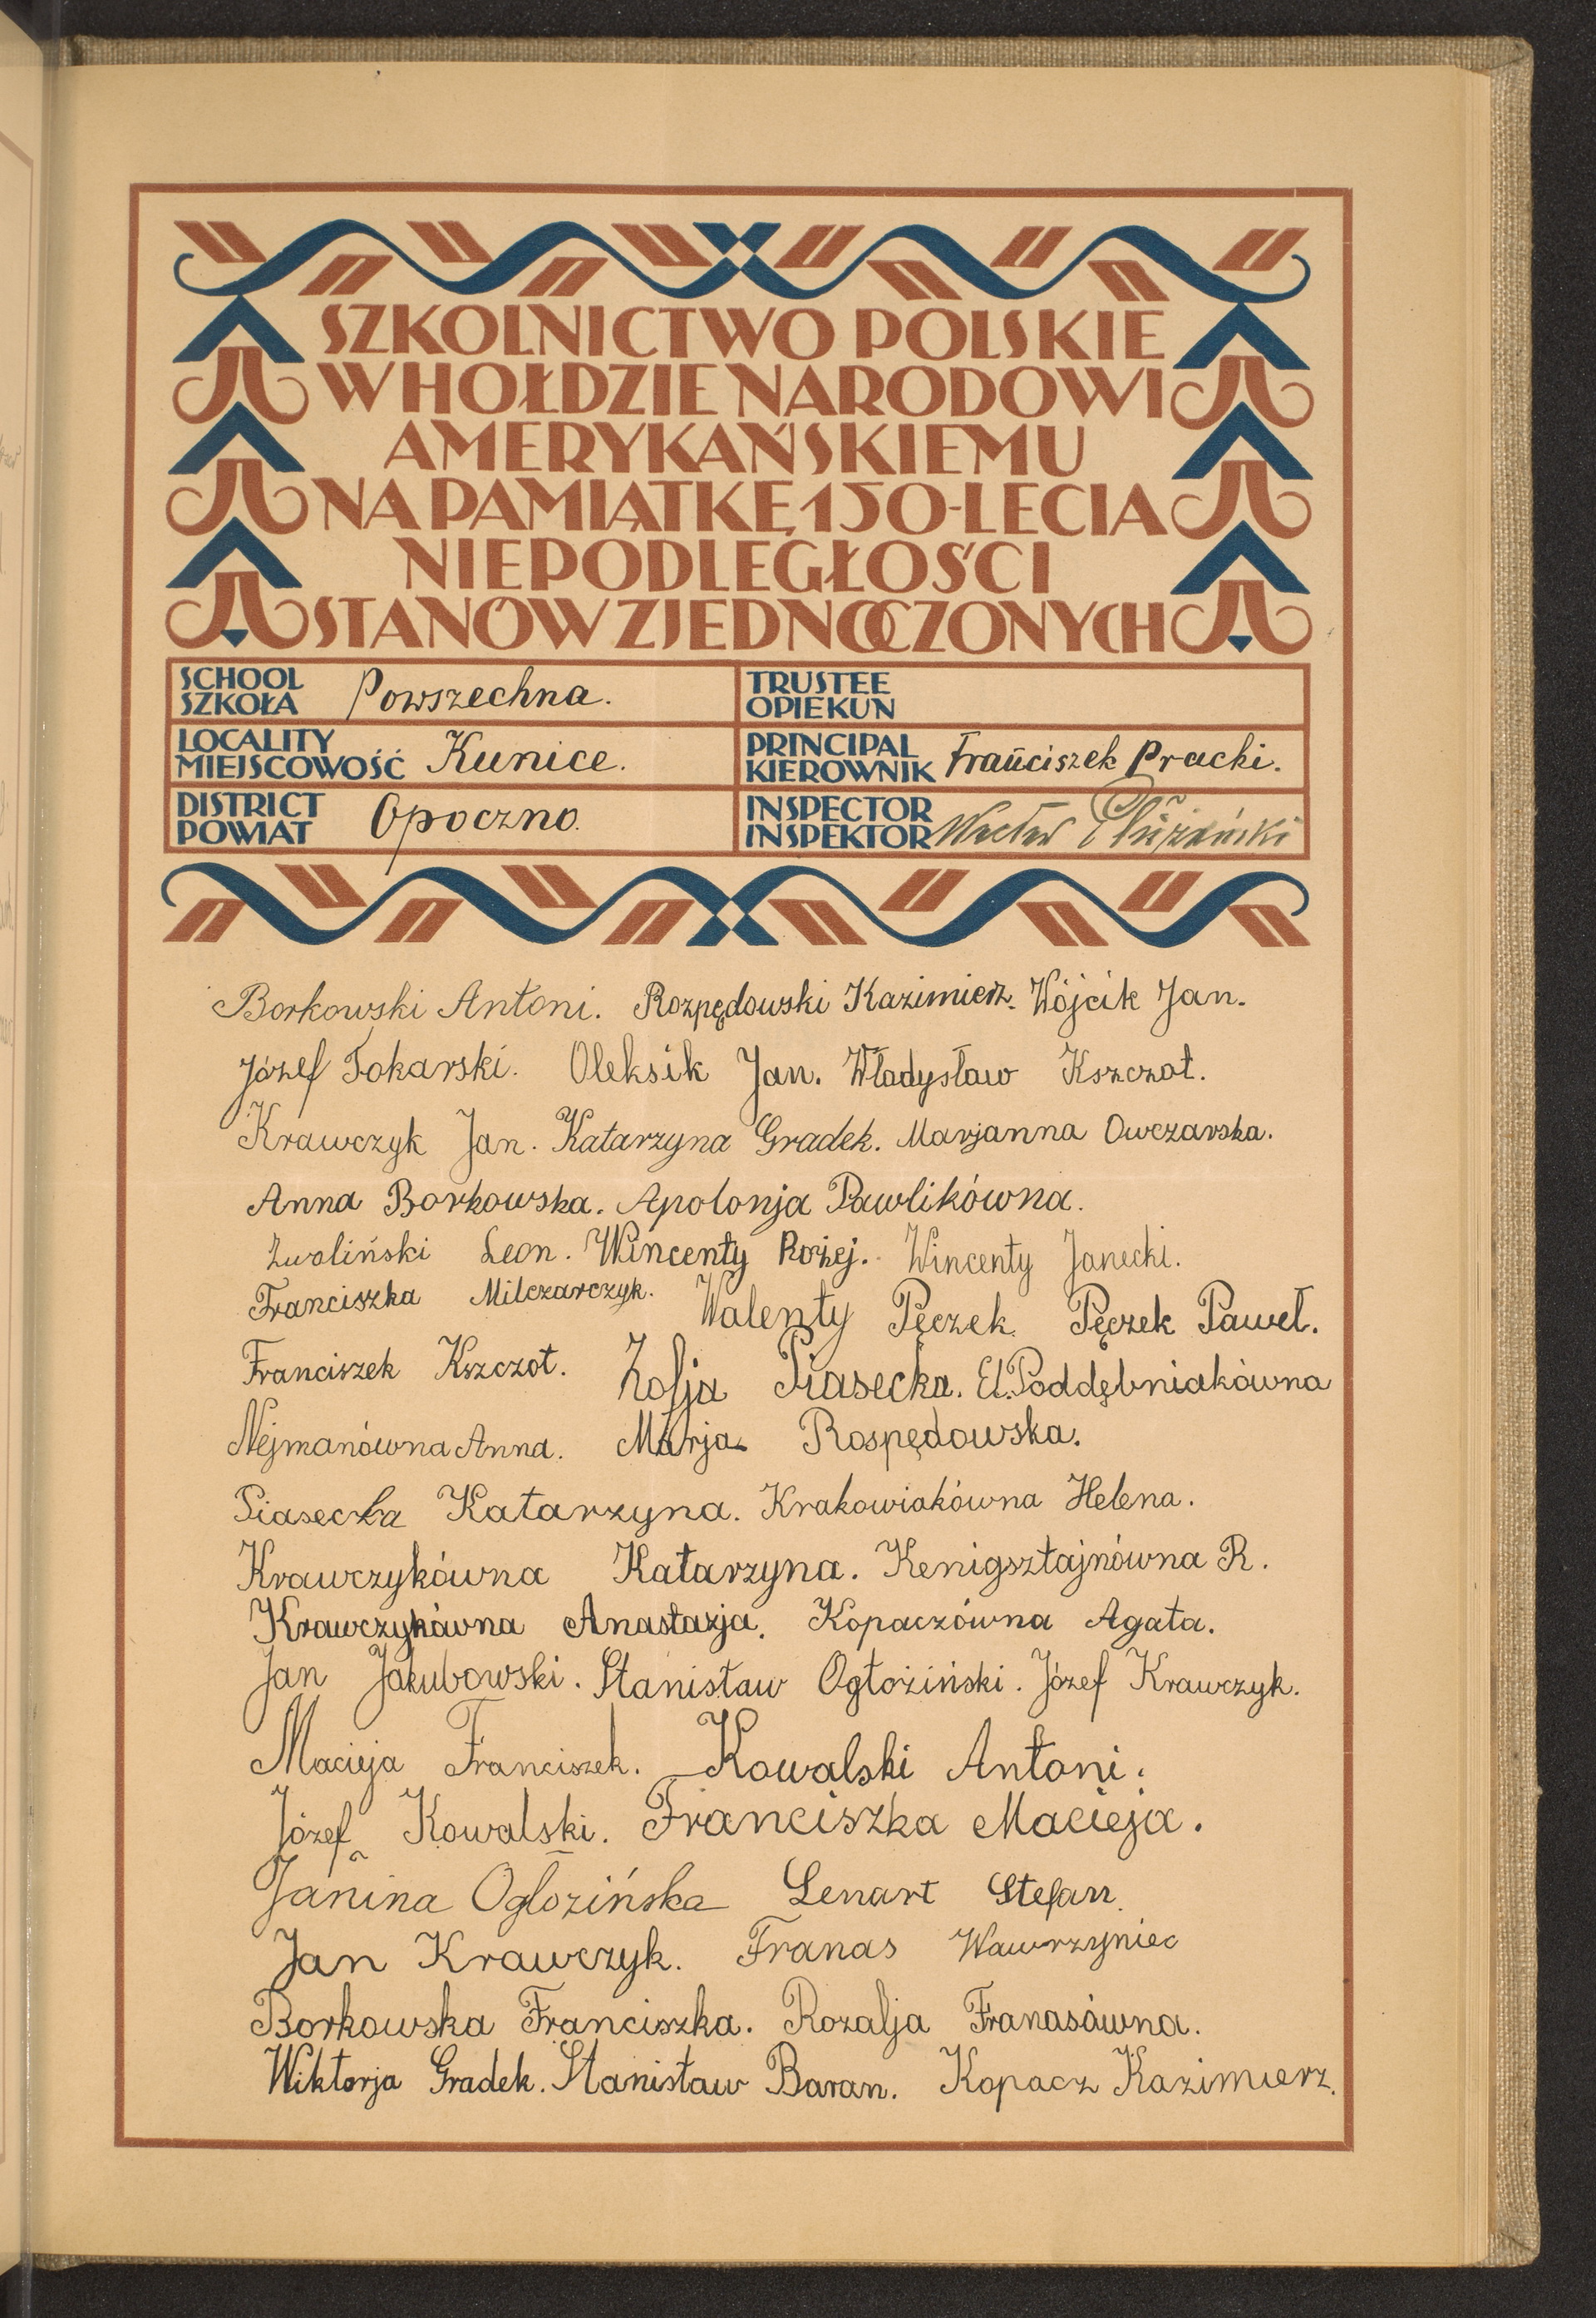 SZKOLNICTWO POLSKIE
W HOŁDZIE NARODOWI
AMERYKAŃSKIEMU
NA PAMIĄTKĘ 150-LECIA
NIEPODLEGŁOŚCI
STANÓW ZJEDNOCZONYCH
SCHOOL
SZKOŁA Powszechna.
TRUSTEE
OPIEKUN
LOCALITY
MIEJSCOWOŚĆ Kunice.
PRINCIPAL
KIEROWNIK Franciszek Pracki.
DISTRICT
POWIAT Opoczno.
INSPECTOR
INSPEKTOR Wacław
Borkowski Antoni. Rozpędowski Kazimierz. Wójcik Jan.
Józef Tokarski. Oleksik Jan. Władysław Kszczot.
Krawczyk Jan. Katarzyna Gradek. Marjanna Owczarska.
Anna Borkowska. Apolonja Pawlikówna.
Zwoliński Leon. Wincenty Rożej. Wincenty Janecki.
Franciszka Milczarczyk. Walenty Pęczek. Pęczek Paweł.
Franciszek Kszczot. Zofja Piasecka. El. Poddębniakówna
Nejmanówna Anna. Marja Rospędowska.
Piasecka Katarzyna. Krakowiakówna Helena.
Krawczykówna Katarzyna. Kenigsztajnówna R.
Krawczykówna Anastazja. Kopaczówna Agata.
Jan Jakubowski. Stanisław Ogłoziński. Józef Krawczyk.
Macieja Franciszek. Kowalski Antoni.
Józef Kowalski. Franciszka Macieja.
Janina Ogłozińska Lenart Stefan.
Jan Krawczyk. Franas Wawrzyniec
Borkowska Franciszka. Rozalja Franasówna.
Wiktorja Gradek. Stanisław Baran. Kopacz Kazimierz.